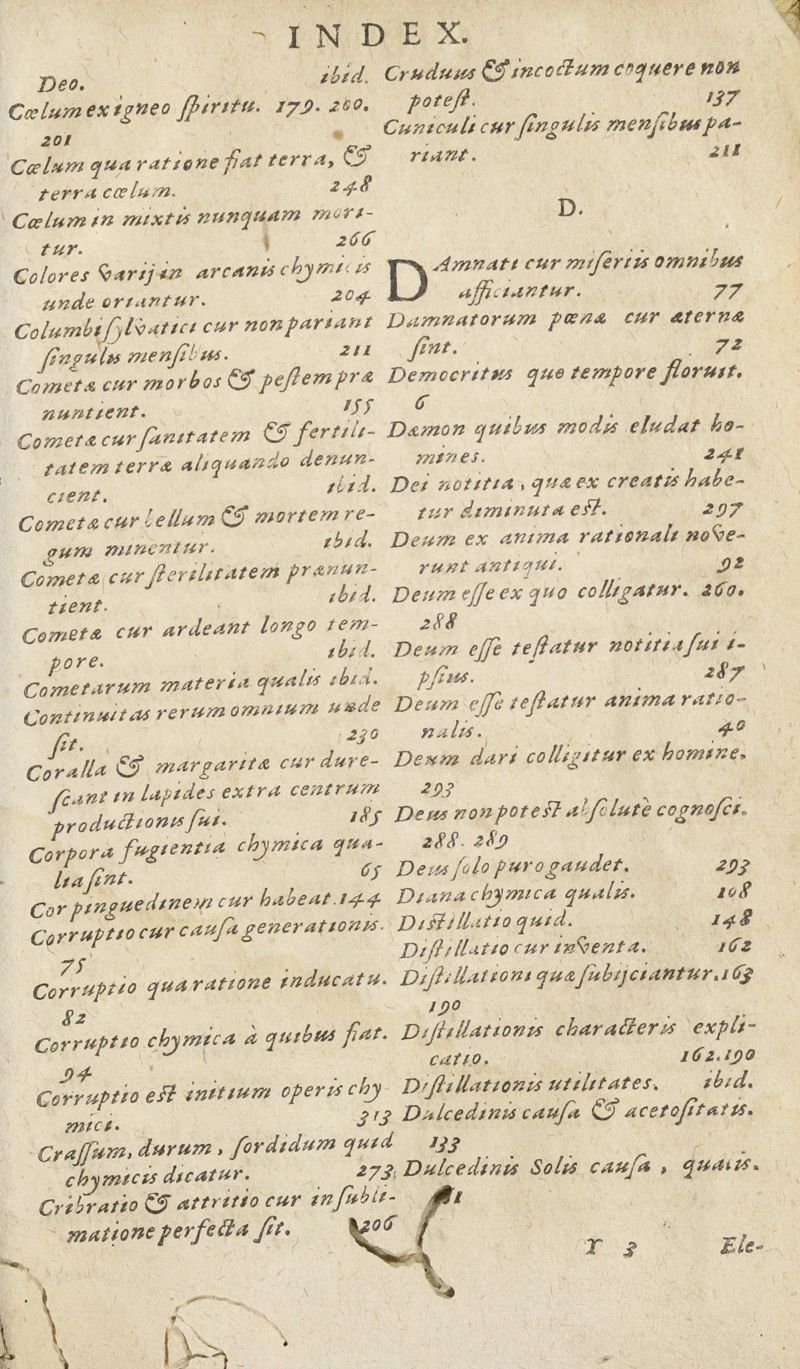 INDEX.
Deo. ibid.
Cœlum ex igneo ſpiritu. 179. 200.
201
Cœlum qua ratione fiat terra, &
terra cœlum. 248
Cœlum in mixtis nunquam mori-
tur. 266
Colores varij in arcanis chymicis
unde oriantur. 204
Columbi ſylvatici cur non pariant
ſingulis menſibus. 211
Cometæ cur morbos & peſtem præ
nuntient. 155
Cometæ cur ſanitatem & fertili-
tatem terræ aliquando denun-
cient. ibid.
Cometæ cur bellum & mortem re-
gum minentur. ibid.
Cometæ cur ſterilitatem prænun-
tient. ibid.
Cometæ cur ardeant longo tem-
pore. ibid.
Cometarum materia qualis ibid.
Continuitas rerum omnium unde
ſit. 230
Coralla & margaritæ cur dure-
ſcant in lapides extra centrum
productionis ſui. 185
Corpora fugientia chymica qua-
lia ſint. 65
Cor pinguedinem cur habeat. 144
Corruptio cur cauſa generationis.
75
Corruptio qua ratione inducatu.
82
Corruptio chymica à quibus fiat.
94
Corruptio est initium operis chy
mici. 313
Craſſum, durum, ſordidum quid
chymicis dicatur. 273
Cribratio & attritio cur in ſubli-
matione perfecta ſit. 206
Cruduus & incoctum coquere non
poteſt. 137
Cuniculi cur ſingulis menſibus pa-
riant. 211
D.
DAmnati cur miſeriis omnibus
afficiantur. 77
Damnatorum pœnæ cur æternæ
ſint. 72
Democritus quo tempore floruit.
6
Dæmon quibus modis eludat ho-
mines. 241
Dei notitia, quæ ex creatis habe-
tur diminuta est. 297
Deum ex anima rationali nove-
runt antiqui. 92
Deum eſſe ex quo colligatur. 260.
288
Deum eſſe teſtatur notitia ſui i-
pſius. 287
Deum eſſe teſtatur anima ratio-
nalis. 40
Deum dari colligitur ex homine.
293
Deus non potest abſolutè cognoſci.
288. 289
Deus ſolo puro gaudet. 293
Diana chymica qualis. 108
Distillatio quid. 148
Diſtillatio cur inventa. 162
Diſtillationi quæ ſubijciantur. 163
190
Diſtillationis characteris expli-
catio. 162. 190
Diſtillationis utilitates. ibid.
Dulcedinis cauſa & acetoſitatis.
133
Dulcedinis Solis cauſa, qualis.
Y 3 Ele-